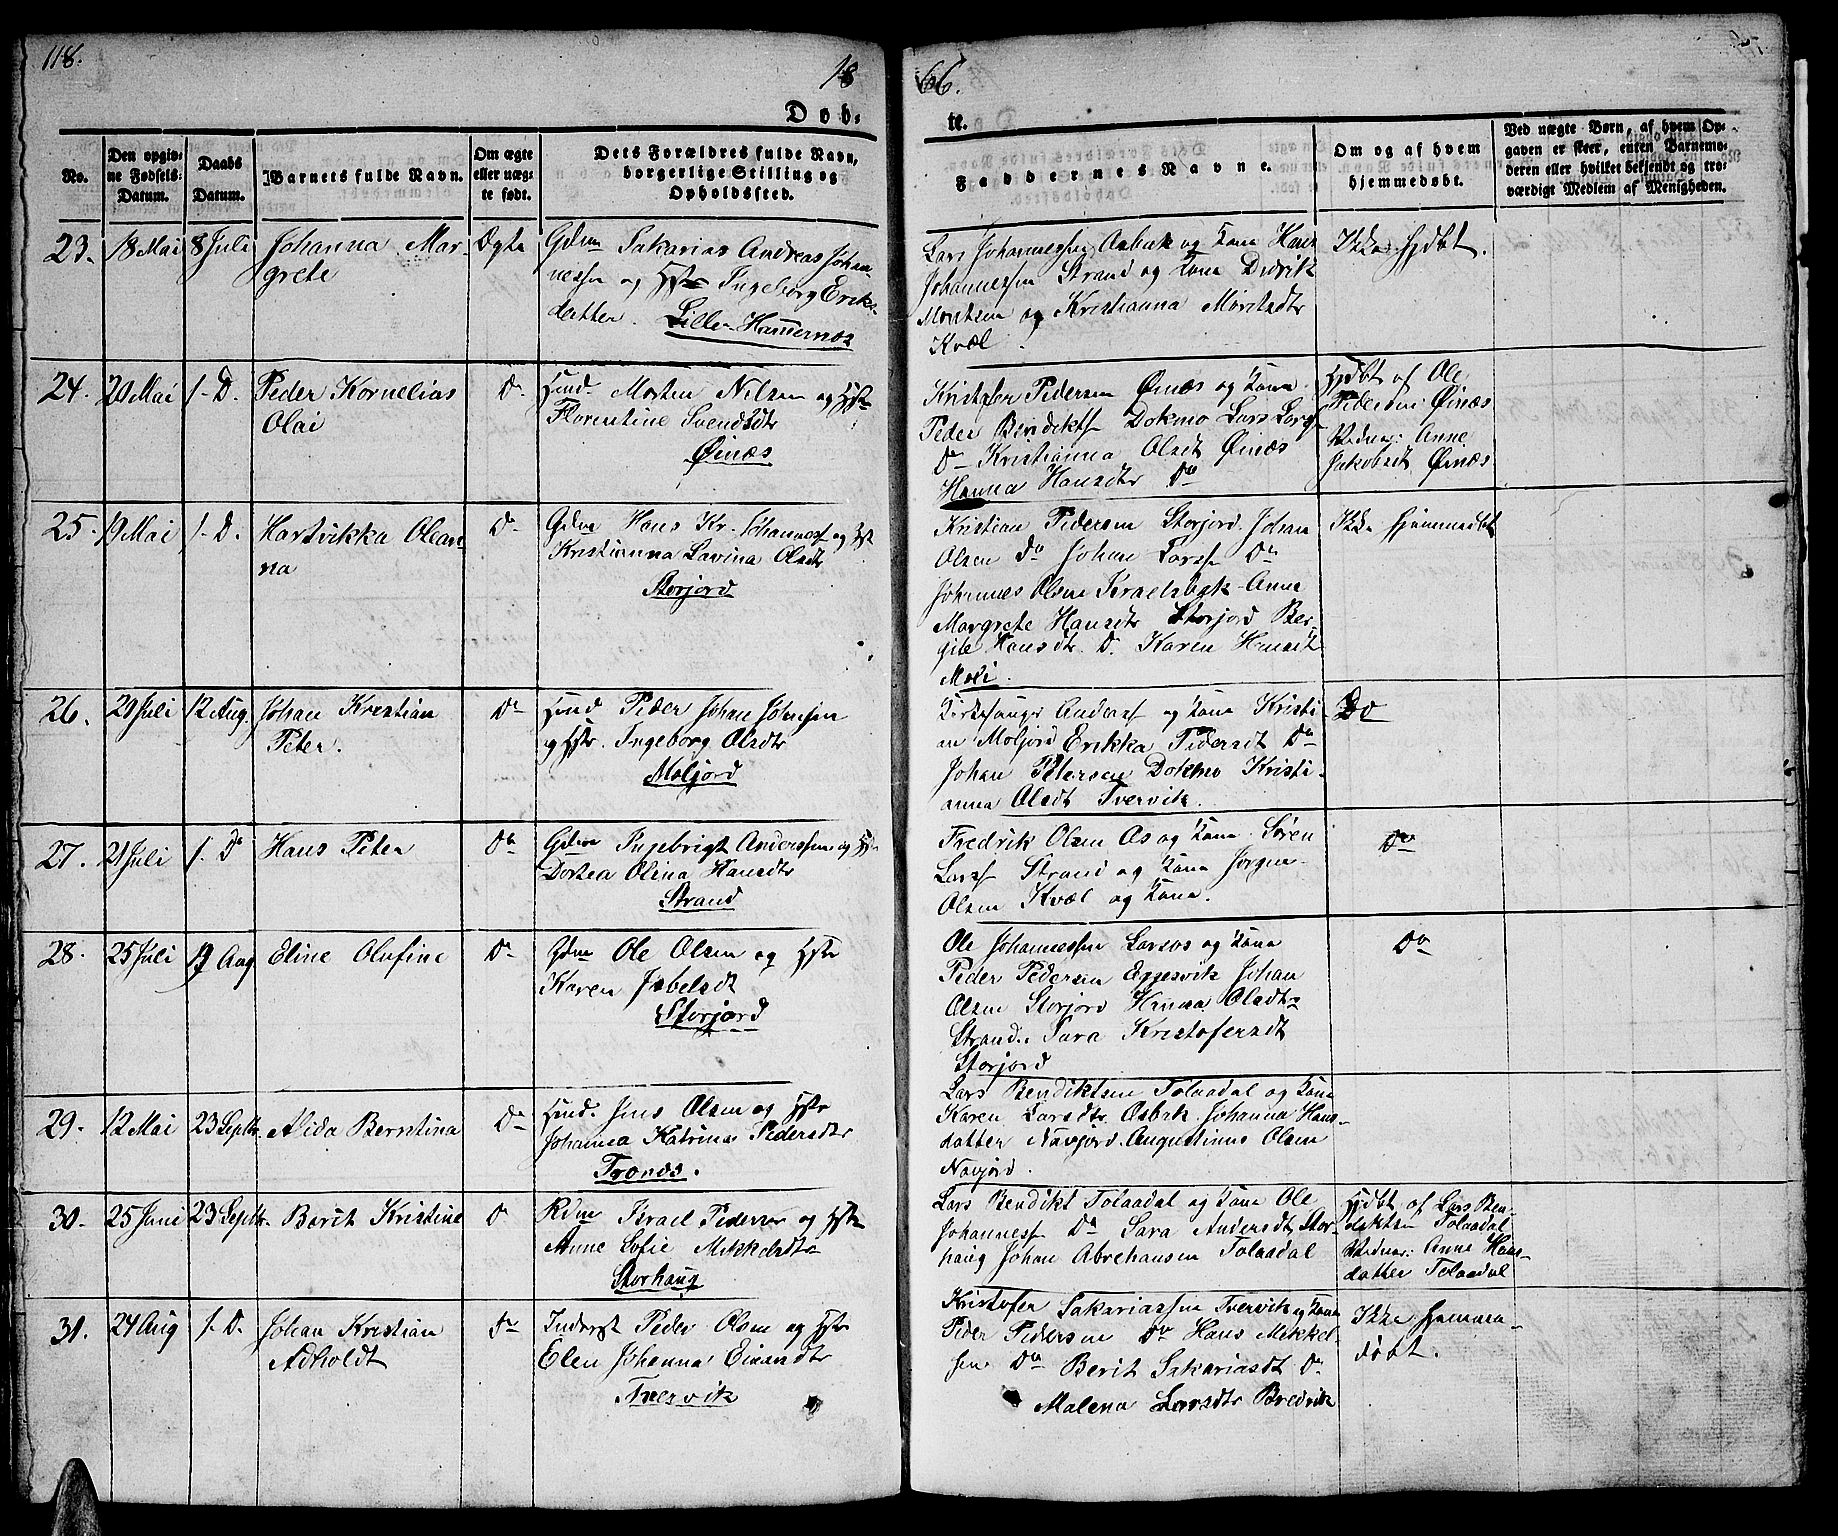 118.
18
66.
Døb-
te.
No.
Den opgiv-
ne Fødsels-
Datum.
Daabs
Datum.
Barnets fulde Navn.
Om ægte
eller uæg-
te født.
Dets Forældres fulde Navn,
borgerlige Stilling og
Opholdssted.
Faddernes Navne.
Om og af hvem
hjemmedøbt.
Ved uægte Børn, af hvem Op-
gaven er skeet, enten Barnemo-
deren eller hvilket bekjendt og tro-
værdigt Medlem af Menigheden.
23. 18 Mai 8 Juli Johanna Mar-
grete
Ægte
Gdmn Sakarias Andreas Johan-
nessen og Hstr Ingeborg Eriks-
datter. Lille-Hamernæs
Lars Johannessen Aasbak og Kone Hans
Johannessen Strand og Kone Didrik
Mortsen og Kristianna Moritsdtr
Kvæl.
Ikke Hjdbt.
24. 20 Mai 1. D. Peder Kornelias
Olai
Do
Hmd. Morten Nilsen og Hstr
Florentine Svendsdtr
Øinæs
Kristofer Pedersen Øinæs og Kone
Peder Bendikts Dokmo Lars Lars
Do Kristianna Olsdt Øinæs
Hanna Hansdtr Do
Hjdbt af Ole
Pedersen Øinæs
Vidner: Anne
Jakobsdt Øinæs
25. 19 Mai 1. D. Hartvikka Olean-
na
Do
Gdmn Hans Kr. Johanness og Hst
Kristianna Lavina Olsdtr
Storjord
Kristian Pedersen Storjord. Johan
Olsen Do Johan Larss Do
Johannes Olsen Israelsbak Anne
Margrete Hansdtr Storjord Ber-
gite Hansdtr. D. Karen Hansdt
Moli.
Ikke hjemmedbt
26. 20 Juli 12 Aug. Johan Kristian
Peter.
Do
Hmd Peder Johan Johnsen
og Hstr. Ingeborg Olsdtr
Moljord
Kirkesanger Anderss og Kone Kristi-
an Moljord Erikka Pedersdt Do
Johan Petersen Dokmo Kristi-
anna Olsdt Tvervik.
Do
27. 21 Juli 1. D. Hans Peter
Do
Gdmn Ingebrigt Anderssen og Hst
Dortea Olina Hansdtr
Strand
Fredrik Olsen Os og Kone. Søren
Larss Strand og Kone Jørgen
Olsen Kvæl og Kone.
Do
28. 25 Juli 19 Aug Eline Olufine
Do
Gdmn Ole Olsen og Hstr
Karen Jabelsdt
Storjord
Ole Johannessen Larsos og Kone
Peder Pedersen Eggesvik Johan
Olsen Storjord Hanna Olsdtr
Strand. Sara Kristofersdt
Storjord
Do
29. 12 Mai 23 Septbr. Alida Berntina
Do
Hmd. Jens Olsen og Hstr
Johanna Katrina Pedersdtr
Trones.
Lars Bendiktsen Tolaadal og Kone
Karen Larsdtr Aasbak. Johanna Hans-
datter Navjord. Augustinus Olsen
Navjord.
30. 25 Juni 23 Septbr. Berit Kristine
Do
Rdmn Israel Pedersen og Hstr
Anne Sofie Mikkelsdtr
Storhaug
Lars Bendikt Tolaadal og Kone Ole
Johanness Do Sara Andersdt Stor-
haug Johan Abrehamsen Tolaadal
Hjdbt af Lars Ben-
diktsen Tolaadal
Vidner: Anne Hans-
datter Tolaadal
31. 24 Aug 1. D. Johan Kristian
Adholdt
Do
Inderst Peder Olsen og Hstr
Elen Johanna Einarsdtr
Tvervik
Kristofer Sakariassen Tvervik og Kone
Peder Pedersen Do Hans Mikkel-
sen Do Berit Sakariasdt Do
Malena Larsdtr Bredvik
Ikke hjemme-
døbt.